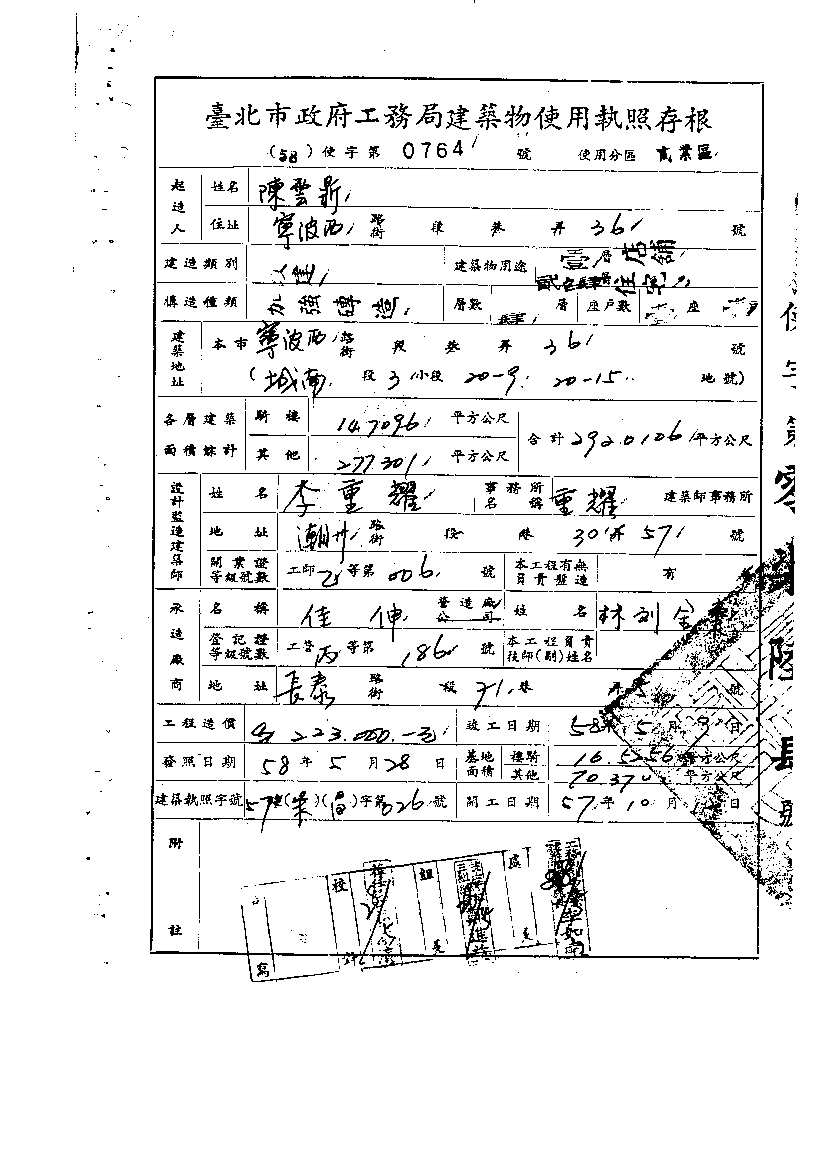 臺北市政府工務局建築物使用執照存根
(58)使字第 0764 號 使用分區 商業區
起造人 姓名 陳雲鼎
住址 寧波西 路街 段 巷 弄 36 號
建造類別 建築物用途 壹層店舖
貳至肆層住宅
構造種類 加強磚造 層數 肆 層 座戶數 座 戶
建築地址 本市 寧波西 路街 段 巷 弄 36 號
(城南 段 3 小段 20-9 20-15 地號)
各層建築面積總計 騎樓 14.7096 平方公尺 合計 292.0106 平方公尺
其他 277.3011 平方公尺
設計監造建築師 姓名 李重耀 事務所名稱 重耀 建築師事務所
地址 潮州 路街 段 巷 30 弄 57 號
開業證等級號數 工師 乙 等第 006 號 本工程有無負責監造 有
承造廠商 名稱 佳伸 營造廠公司 姓名 林劉金
登記證等級號數 工營 丙 等第 186 號 本工程負責技師(副)姓名
地址 長泰 路街 段 71 巷 弄 號
工程造價 223.000.-元 竣工日期 58 年 5 月 9 日
發照日期 58 年 5 月 28 日 基地面積 樓騎 16.5256 平方公尺
其他 70.370 平方公尺
建築執照字號 57 字第 026 號 開工日期 57 年 10 月 日
附註
校 組 處
寫
使字第零柒陸肆號